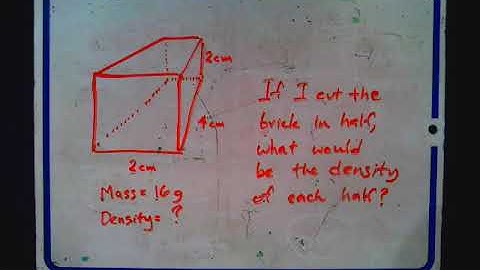 2cm
4cm
2cm
Mass = 16 g
Density = ?
If I cut the
brick in half,
what would
be the density
of each half?